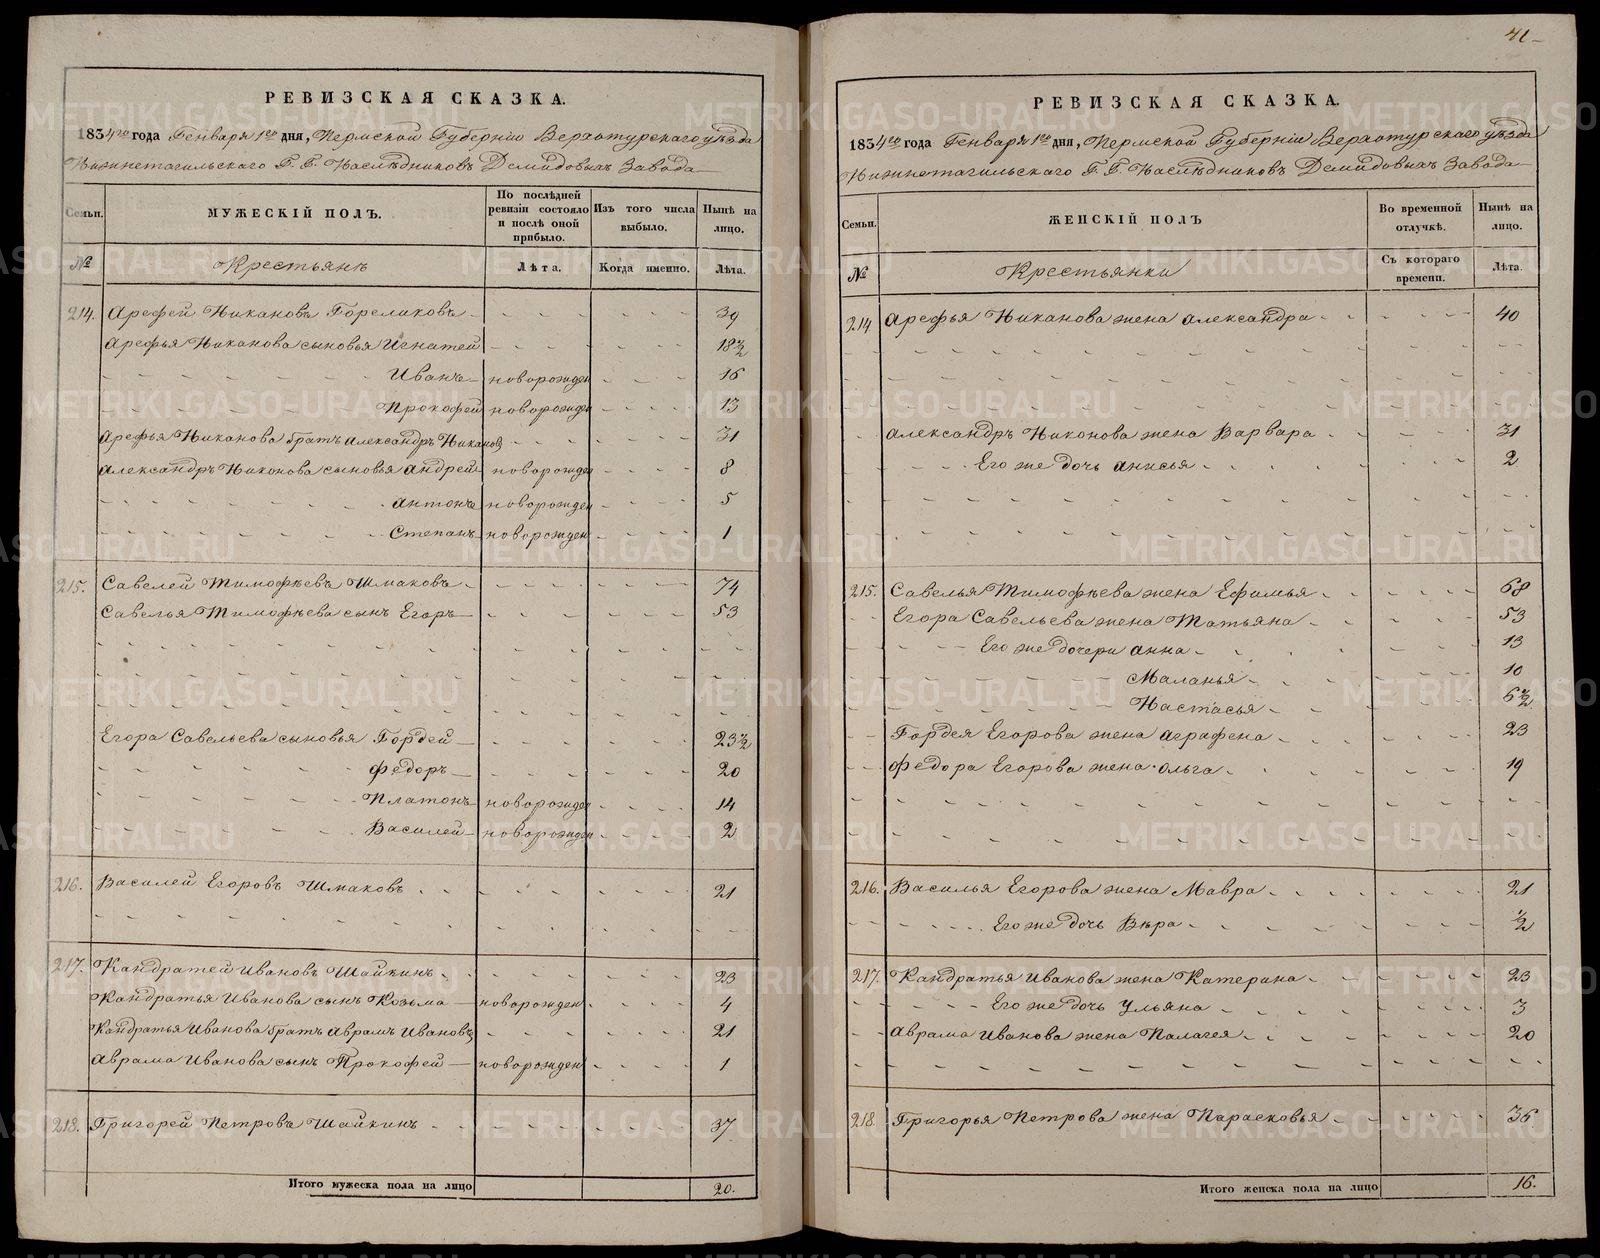 РЕВИЗСКАЯ СКАЗКА.
1834го года Генваря 1го дня, Пермской Губернiи Верхотурскаго уѣзда
Нижнетагильскаго Г. Г. Наслѣдниковъ Демидовыхъ Завода
Семьи. МУЖЕСКІЙ ПОЛЪ. По послѣдней ревизіи состояло и послѣ оной прибыло. Изъ того числа выбыло. Нынѣ на лицо.
№ Крестьянъ Лѣта. Когда именно. Лѣта.
214. Арефей Никановъ Гореликовъ 39
Арефья Никанова сыновья Игнатей 18½
Иванъ новорожден 16
Прокофей новорожден 13
Арефья Никанова братъ Александръ Никановъ 31
Александръ Никонова сыновья Андрей новорожден 8
Антонъ новорожден 5
Степанъ новорожден 1
215. Савелей Тимофѣевъ Шмаковъ 74
Савелья Тимофѣева сынъ Егоръ 53
Егора Савельева сыновья Гордей 23½
Федоръ 20
Платонъ новорожден 14
Василей новорожден 2
216. Василей Егоровъ Шмаковъ 21
217. Кандратей Ивановъ Шайкинъ 23
Кандратья Иванова сынъ Козьма новорожден 4
Кандратья Иванова братъ Аврамъ Ивановъ 21
Аврама Иванова сынъ Прокофей новорожден 1
218. Григорей Петровъ Шайкинъ 37
Итого мужеска пола на лицо 20.
41
РЕВИЗСКАЯ СКАЗКА.
1834го года Генваря 1го дня, Пермской Губернiи Верхотурскаго уѣзда
Нижнетагильскаго Г. Г. Наслѣдниковъ Демидовыхъ Завода
Семьи. ЖЕНСКІЙ ПОЛЪ Во временной отлучкѣ. Нынѣ на лицо.
№ Крестьянки Съ котораго времени. Лѣта.
214 Арефья Никанова жена Александра 40
Александръ Никонова жена Варвара 31
Его же дочь Анисья 2
215. Савелья Тимофѣева жена Ефимья 68
Егора Савельева жена Татьяна 53
Его же дочери Анна 13
Маланья 10
Настасья 6½
Гордея Егорова жена Аграфена 23
Федора Егорова жена Ольга 19
216. Василья Егорова жена Мавра 21
Его же дочь Вѣра ½
217. Кандратья Иванова жена Катерина 23
Его же дочь Ульяна 3
Аврама Иванова жена Палагея 20
218. Григорья Петрова жена Парасковья 36
Итого женска пола на лицо 16.
METRIKI.GASO-URAL.RU